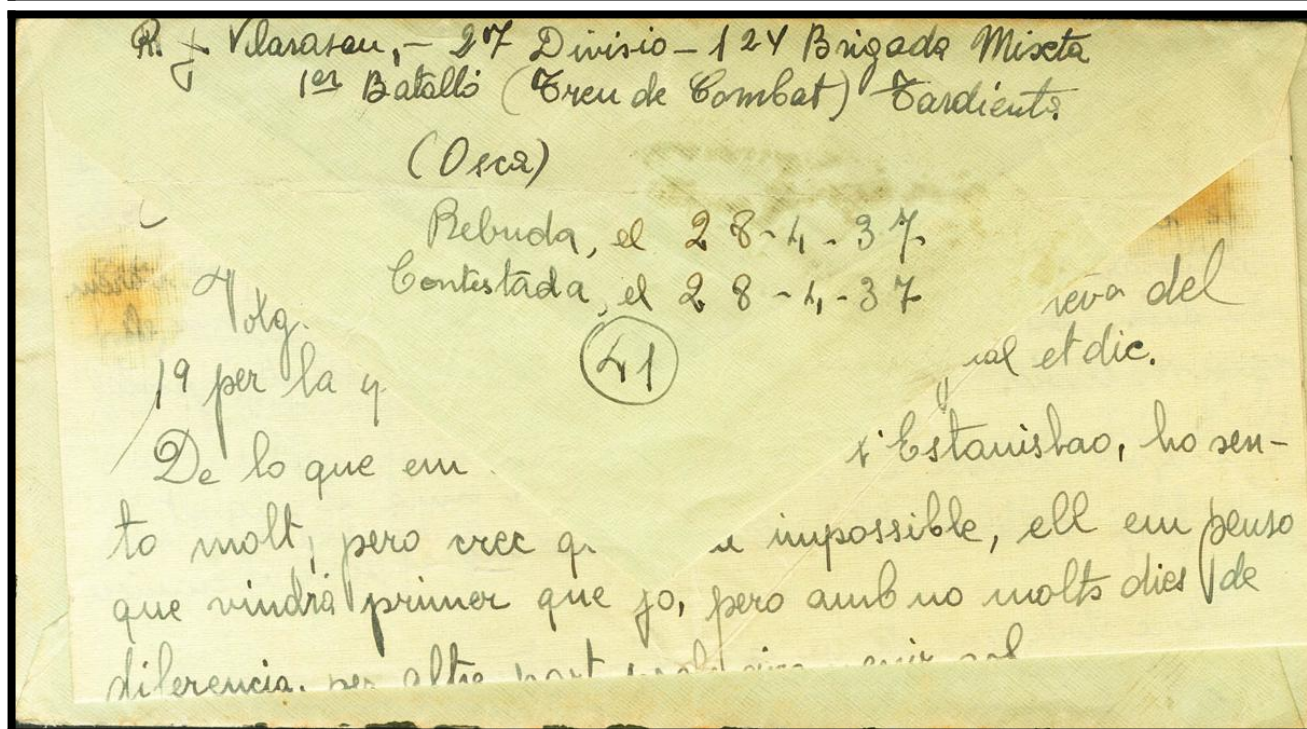 R. J. Vilarasau, - 27 Divisio - 124 Brigada Mixta
1er Batalló (Treu de Combat) Tardienta
(Osca)
Rebuda, el 28-4-37
Contestada, el 28-4-37
41
del
19 per la
et dic.
De lo que em Estanislao, ho sen-
to molt, pero crec impossible, ell em penso
que vindrà primer que jo, pero amb no molts dies de
diferencia, per altre part